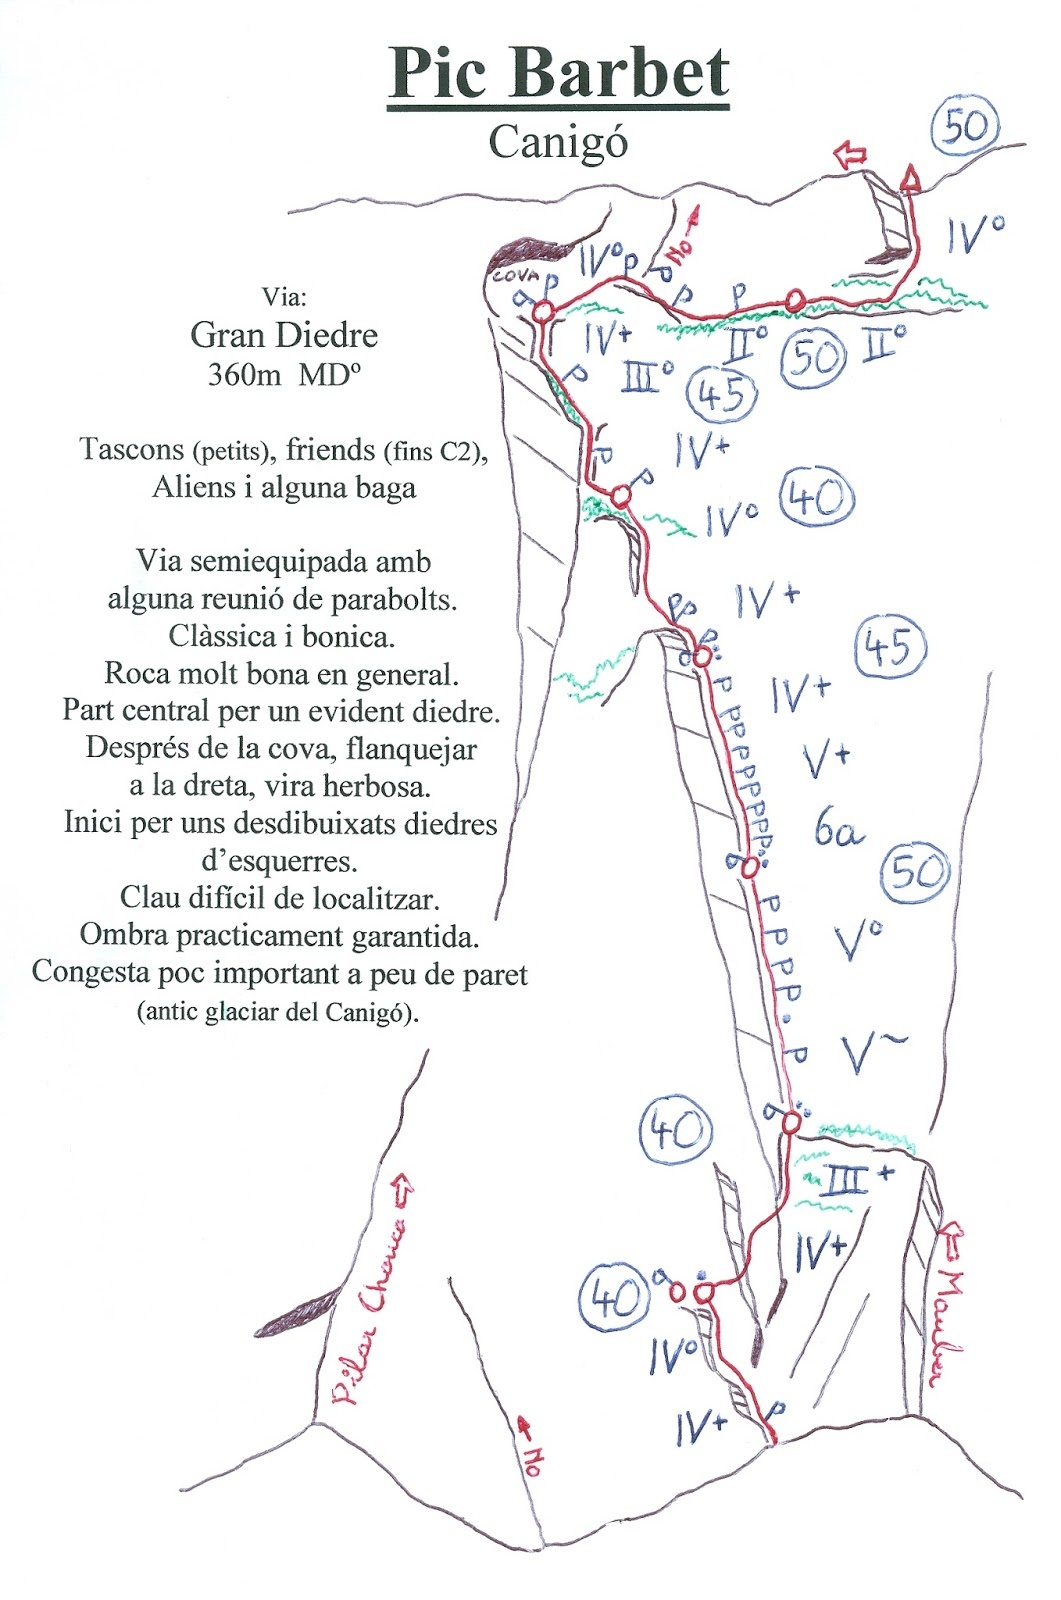 Pic Barbet
Canigó
50
IVº
No
COVA
IVº
P
P
P
P
P
Via:
Gran Diedre
360m MDº
IV+
IIº
IIº
50
IIIº
P
45
Tascons (petits), friends (fins C2),
Aliens i alguna baga
IV+
P
P
40
IVº
Via semiequipada amb
alguna reunió de parabolts.
Clàssica i bonica.
Roca molt bona en general.
Part central per un evident diedre.
Després de la cova, flanquejar
a la dreta, vira herbosa.
Inici per uns desdibuixats diedres
d'esquerres.
Clau difícil de localitzar.
Ombra practicament garantida.
Congesta poc important a peu de paret
(antic glaciar del Canigó).
IV+
PP
P
45
IV+
P
PPPPPPPPP
V+
6a
50
P
P
P
P
Vº
P
V~
40
III+
IV+
40
IVº
IV+
P
Pilar Chouca
Mauber
No